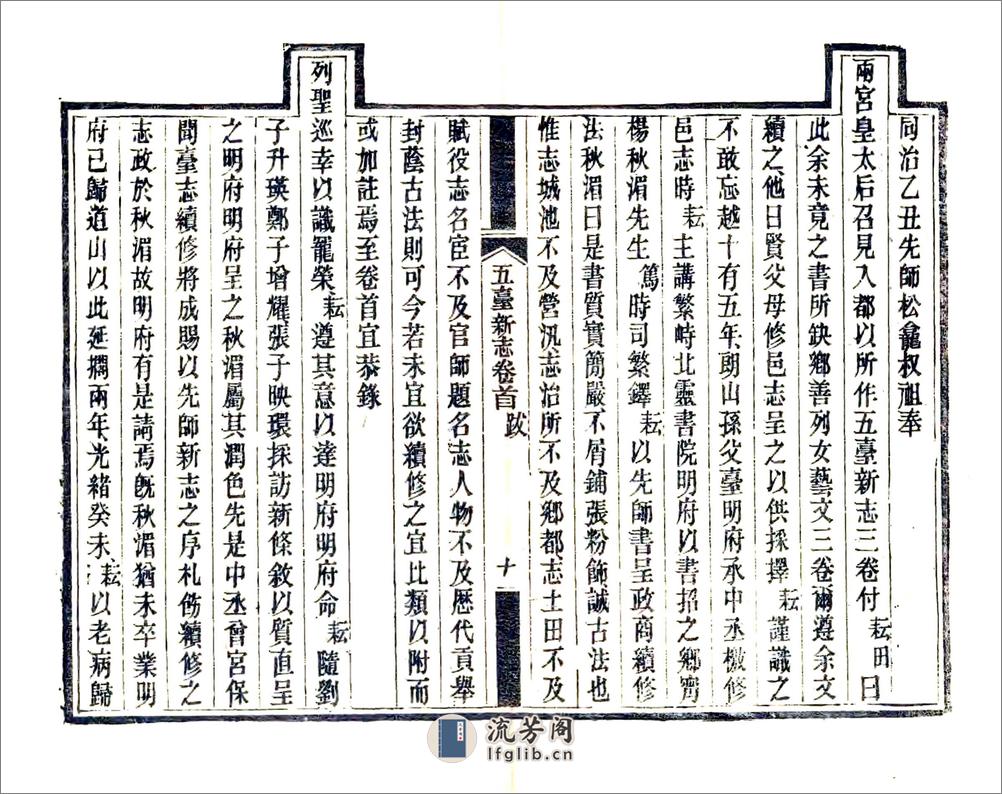 同治乙丑先師松龕叔祖奉
兩宮皇太后召見入都以所作五臺新志三卷付耘田曰
此余未竟之書所缺鄉善列女藝文三卷爾遵余文
續之他日賢父母修邑志呈之以供採擇耘謹識之
不敢忘越十有五年朗山孫父臺明府承中丞檄修
邑志時耘主講繁峙北靈書院明府以書招之鄉甯
楊秋湄先生篤時司繁鐸耘以先師書呈政商續修
法秋湄曰是書質實簡嚴不屑鋪張粉飾誠古法也
惟志城池不及營汛志治所不及鄉都志土田不及
五臺新志卷首 跋 十
賦役志名宦不及官師題名志人物不及歷代貢舉
封蔭古法則可今若未宜欲續修之宜比類以附而
或加註焉至卷首宜恭錄
列聖巡幸以識寵榮耘遵其意以達明府明府命耘隨劉
子升瑛鄭子增耀張子映環採訪新條敘以質直呈
之明府明府呈之秋湄屬其潤色先是中丞曾宮保
聞臺志續修將成賜以先師新志之序札飭續修之
志政於秋湄故明府有是請焉旣秋湄猶未卒業明
府已歸道山以此延擱兩年光緒癸未耘以老病歸
流芳阁
lfglib.cn